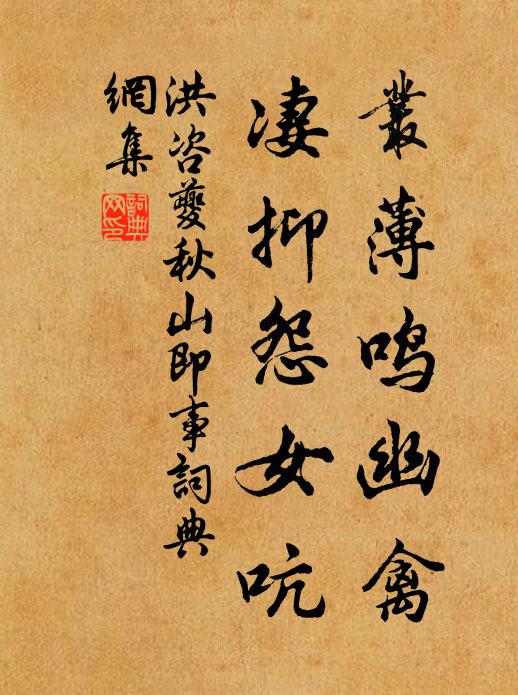 叢薄鳴幽禽
凄抑怨女吭
洪咨夔秋山即事詞典
網集
詞典
网印